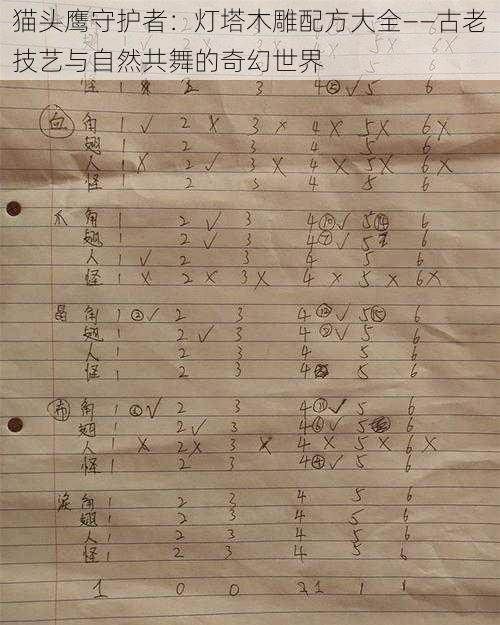 猫头鹰守护者：灯塔木雕配方大全——古老
技艺与自然共舞的奇幻世界
怪 1 X 2 3 4 ⑤ ✓ 5 6
向 角 1 ✓ 2 X 3 X 4 X 5 X 6 X
翅 1 2 3 4 5 6
人 1 X 2 ✓ 3 X 4 X 5 X 6 X
怪 1 2 3 4 5 6
爪 角 1 2 ✓ 3 4 ⑩ ✓ 5 ⑭ 6
翅 1 2 ✓ 3 4 ⑦ ✓ 5 6
人 1 ✓ 2 3 4 5 6
怪 1 X 2 X 3 X 4 X 5 X 6 X
晶 角 1 ② ✓ 2 3 4 ⑫ ✓ 5 ⑮ 6
翅 1 2 ✓ 3 4 ✓ 5 6
人 1 2 3 4 5 6
怪 1 2 3 4 5 6
布 角 1 ✓ 2 3 4 ⑪ ✓ 5 6
翅 1 2 ✓ 3 4 ⑥ ✓ 5 6
人 1 X 2 X 3 X 4 X 5 X 6 X
怪 1 2 3 4 ④ ✓ 5 6
泪 角 1 2 3 4 5 6
翅 1 2 3 4 5 6
人 1 2 3 4 5 6
怪 1 2 3 4 5 6
1 0 0 1 1 1